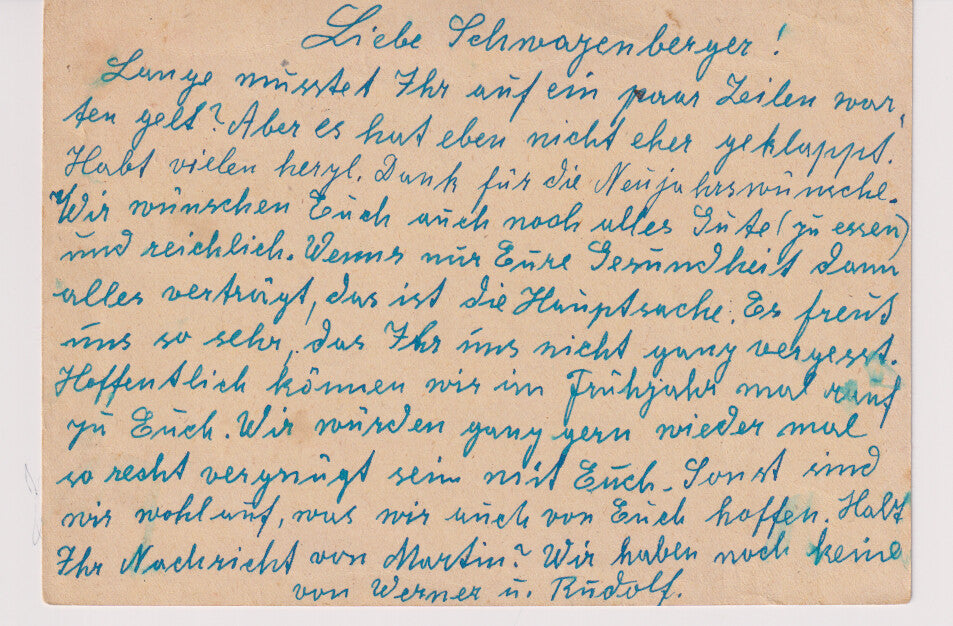 Liebe Schwazenberger!
Lange musstet Ihr auf ein paar Zeilen war,
ten gelt? Aber es hat eben nicht eher geklappt.
Habt vielen herzl. Dank für die Neujahrswünsche.
Wir wünschen Euch auch noch alles Gute (zu essen)
und reichlich. Wenns nur Eure Gesundheit dann
alles verträgt, das ist die Hauptsache. Es freut
uns so sehr, das Ihr uns nicht ganz vergesst.
Hoffentlich können wir im Frühjahr mal rauf
zu Euch. Wir würden ganz gern wieder mal
so recht vergnügt sein mit Euch. Sonst sind
wir wohlauf, was wir auch von Euch hoffen. Habt
Ihr Nachricht von Martin? Wir haben noch keine
von Werner u. Rudolf.